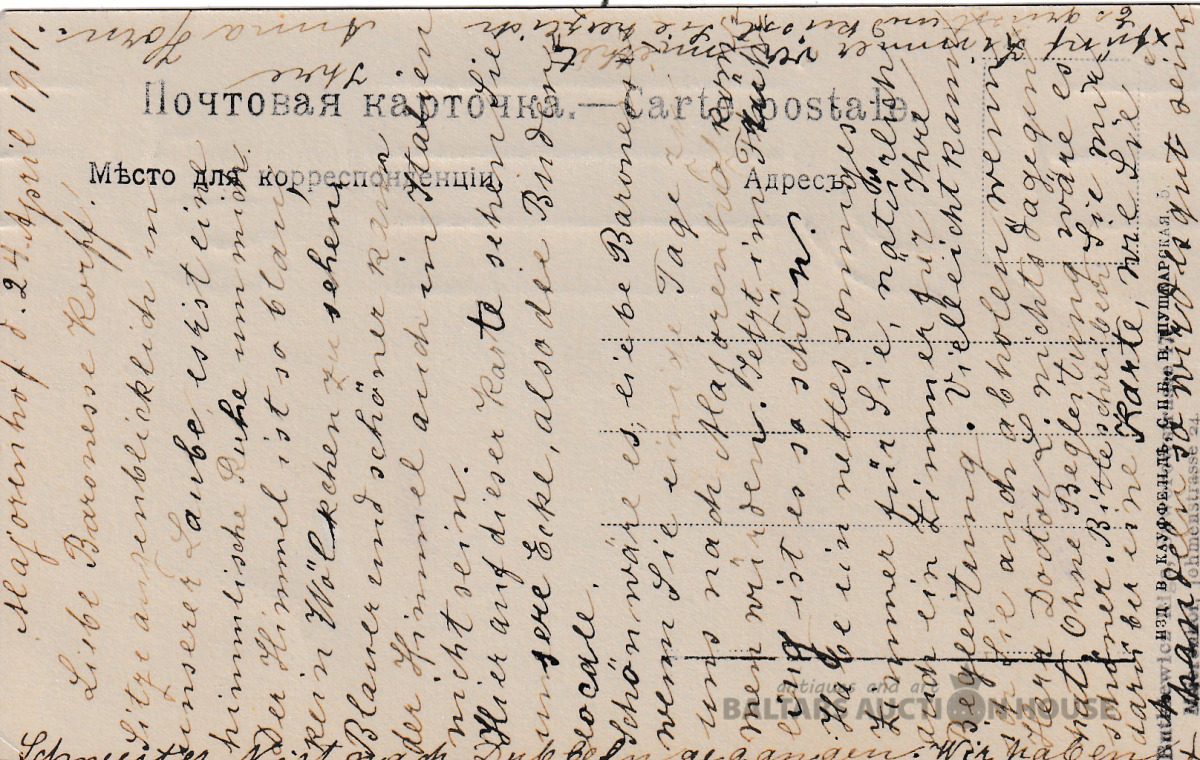 Majorenhof d. 24. April 1911.
Liebe Baronesse Korff!
Sitze augenblicklich in
unserer Laube, es ist eine
himmlische Ruhe um mich.
Der Himmel ist so blau,
kein Wölkchen zu sehen
Blauer und schöner kann
der Himmel auch in Italien
nicht sein.
Hier auf dieser Karte sehen Sie
unsere Ecke, also die Buden
locale.
Schön wäre es, liebe Baronesse
wenn Sie einige Tage zu
uns nach Majorenhof kom
men würden. Jetzt im Früh
ling ist es so schön.
Habe ein nettes sonniges
Zimmer für Sie, natürlich
auch ein Zimmer für Ihre
Begleitung. Vielleicht kann
ich Sie auch abholen, wenn
Herr Doctor nichts dagegen
hat. Ohne Begleitung wäre es
schöner. Bitte schreiben Sie mir
darüber eine Karte, wie Sie
darüber
so wird's gut sein
Schwester nach gegangen. Wir haben
fünf Zimmer vermiethet.
Es grüsst und küsst
Sie herzlich
Ihre
Anna Horn.
Почтовая карточка.—Carte postale.
Мѣсто для корреспонденціи.
Адресъ.
antiques and art
BALTARS AUCTION HOUSE